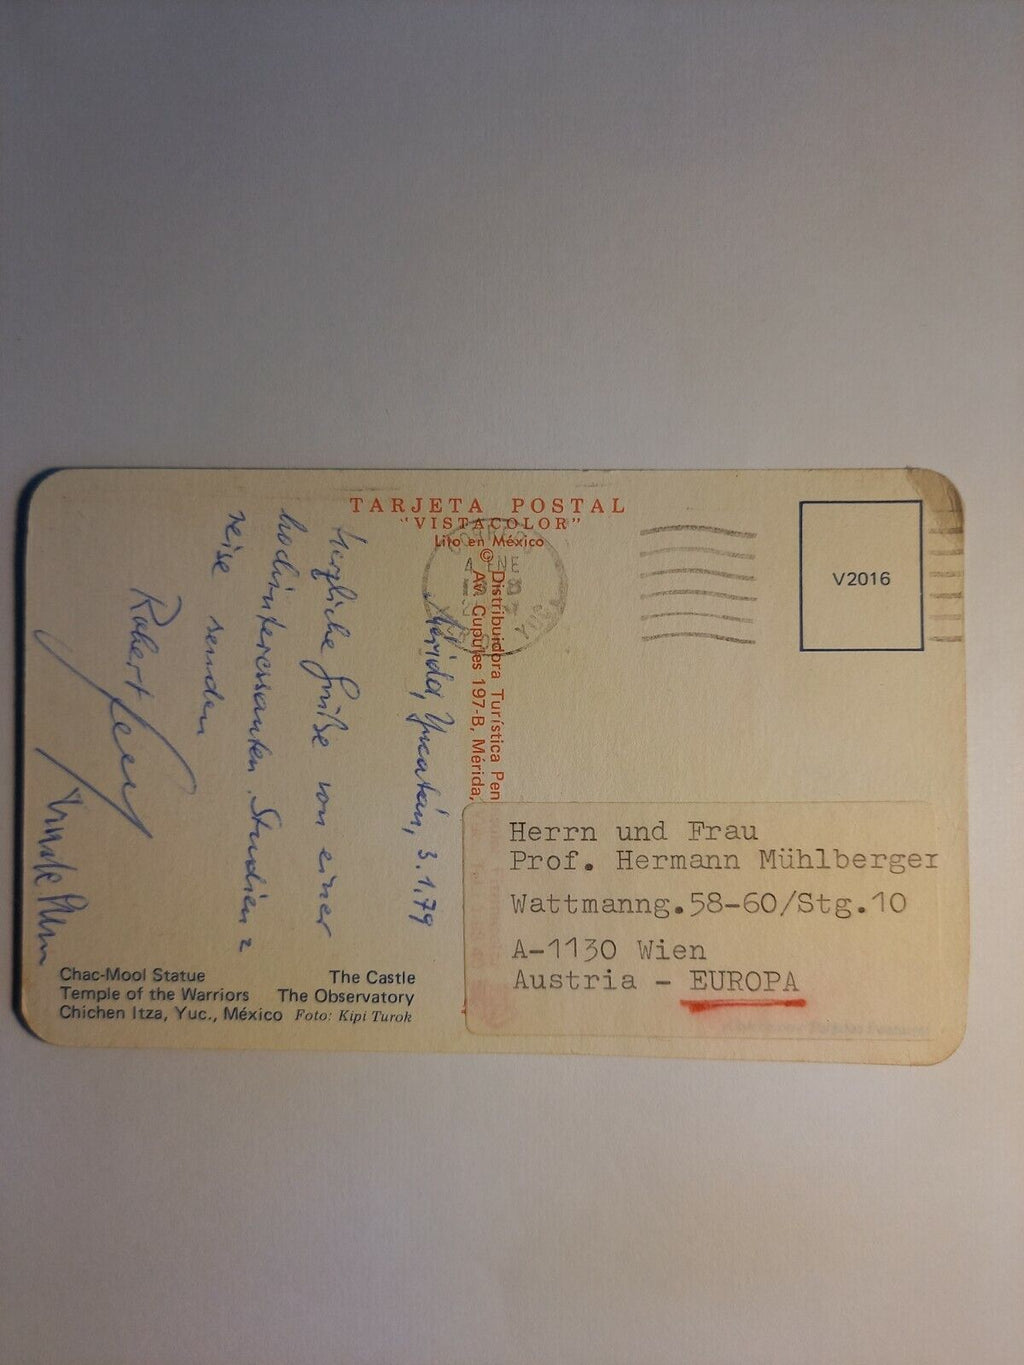 TARJETA POSTAL
"VISTACOLOR"
Lito en México
©
Distribuidora Turística Pen
Av. Cupules 197-B, Mérida,
V2016
Mérida, Yucatán, 3.1.79
Herzliche Grüße von einer
hochinteressanten Studien=
reise senden
Robert
Herrn und Frau
Prof. Hermann Mühlberger
Wattmanng.58-60/Stg.10
A-1130 Wien
Austria - EUROPA
Chac-Mool Statue The Castle
Temple of the Warriors The Observatory
Chichen Itza, Yuc., México Foto: Kipi Turok